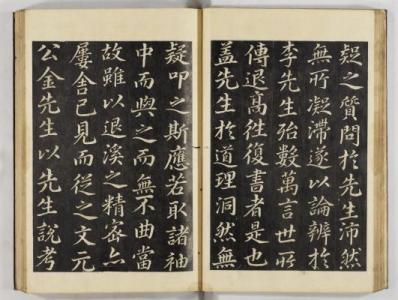 疑之質問於先生沛然
無所凝滯遂以論辨於
李先生殆數萬言世所
傳退高往復書者是也
盖先生於道理洞然無
疑叩之斯應若取諸袖
中而與之而無不曲當
故雖以退溪之精密亦
屢舍己見而從之文元
公金先生以先生說考